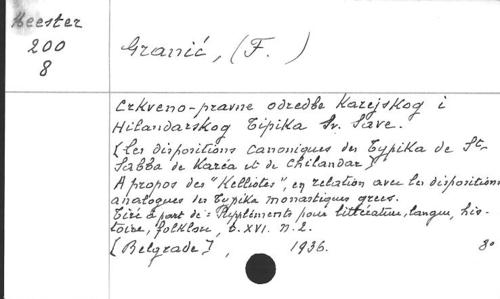 Meester
200
8
Granić, (F. )
Crkveno-pravne odredbe Karejskog i
Hilandarskog Tipika Sv. Save.
[Les dispositions canoniques des Typika de St.
Sabba de Karéa et de Chilandar]
A propos des "Kelliotes", en relation avec les dispositions
analogues des typika monastiques grecs.
Tiré à part de: Suppléments pour littérature, langue, his-
toire, folklore, t. XVI. n. 2.
[Belgrade], 1936. 8°